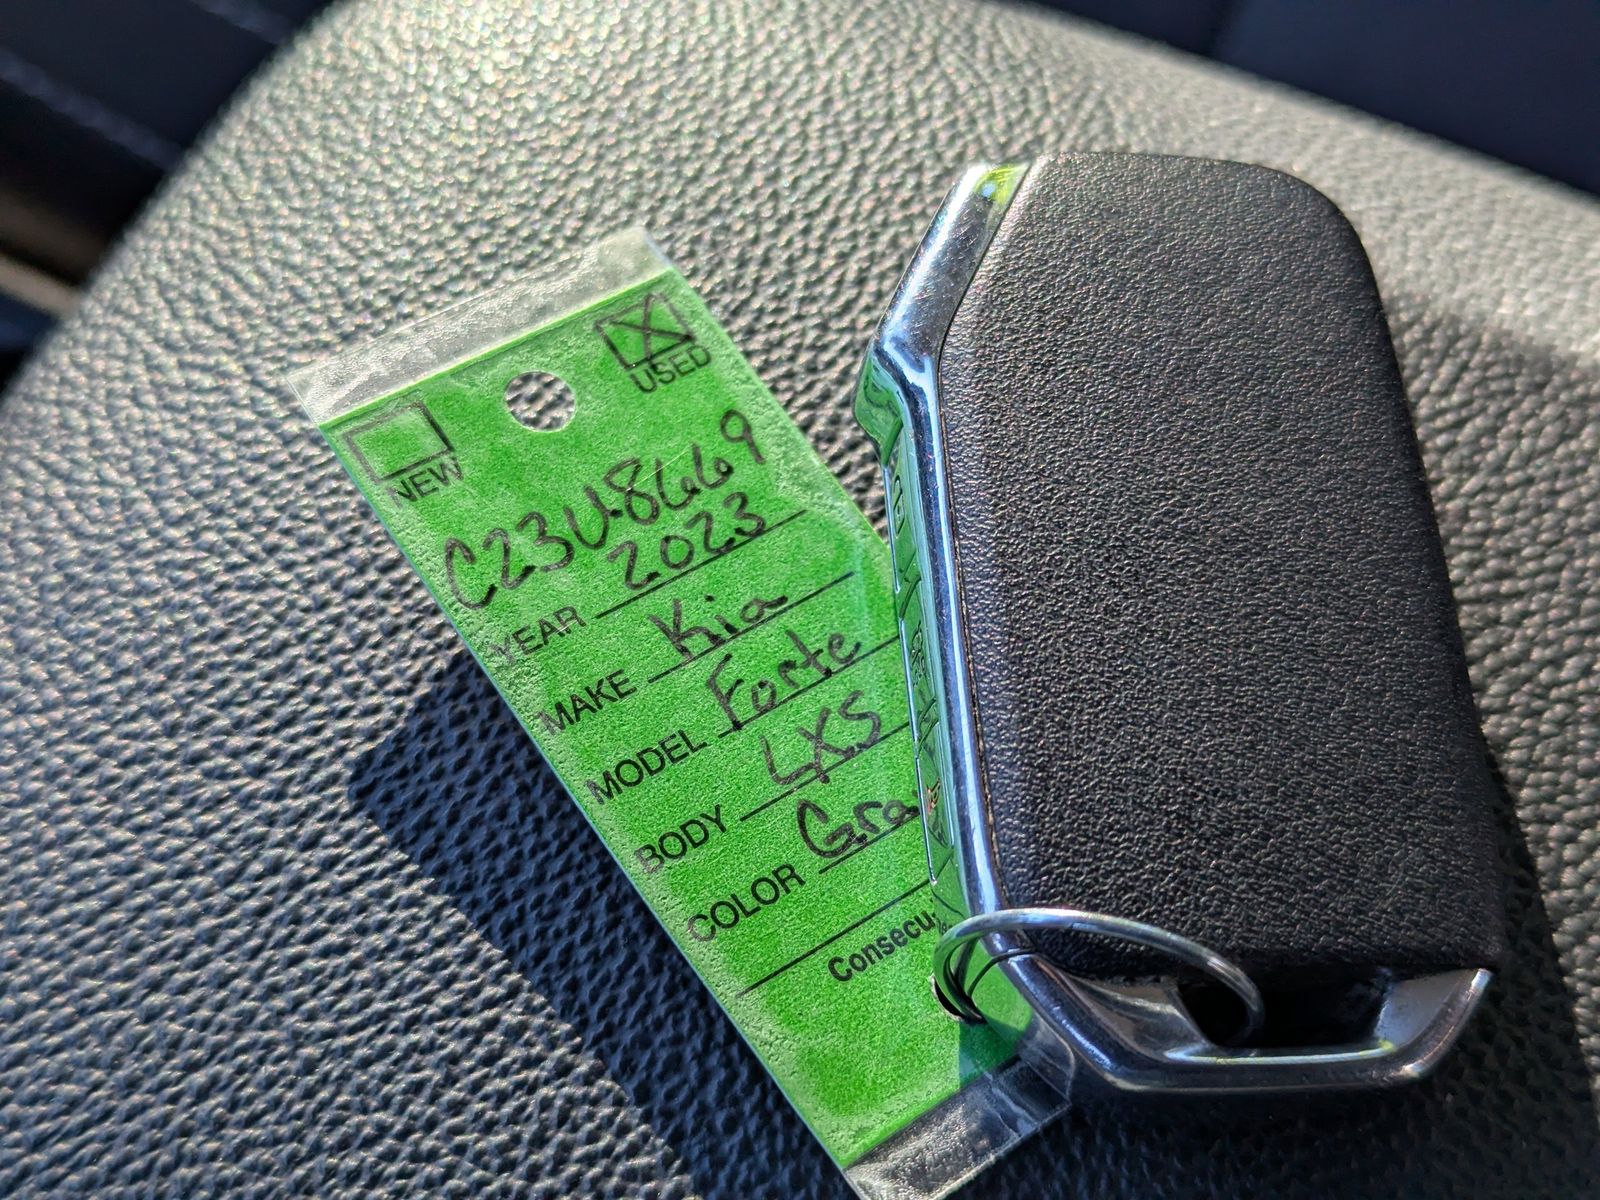 USED
NEW
C23U8669
YEAR 2023
MAKE Kia
MODEL Forte
BODY LXS
COLOR Gra
Consecu